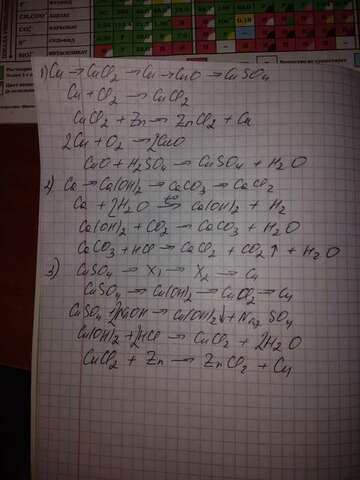 1) Cu → CuCl₂ → Cu → CuO → CuSO₄
Cu + Cl₂ → CuCl₂
CuCl₂ + Zn → ZnCl₂ + Cu
2Cu + O₂ → 2CuO
CuO + H₂SO₄ → CuSO₄ + H₂O
2) Ca → Ca(OH)₂ → CaCO₃ → CaCl₂
Ca + 2H₂O → Ca(OH)₂ + H₂
Ca(OH)₂ + CO₂ → CaCO₃ + H₂O
CaCO₃ + HCl → CaCl₂ + CO₂↑ + H₂O
3) CuSO₄ → X₁ → X₂ → Cu
CuSO₄ → Cu(OH)₂ → CuCl₂ → Cu
CuSO₄ + 2NaOH → Cu(OH)₂↓ + Na₂SO₄
Cu(OH)₂ + 2HCl → CuCl₂ + 2H₂O
CuCl₂ + Zn → ZnCl₂ + Cu